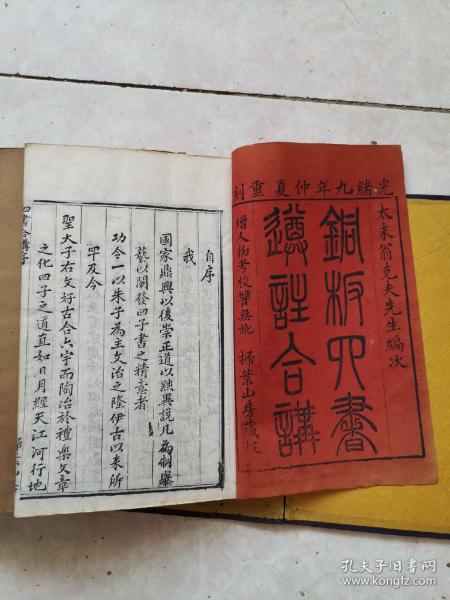 光緒九年仲夏重刻
太末翁克夫先生編次
銅板四書
遵註合講
增人物考校讐無訛
掃葉山房藏板
自序
我
國家鼎興以後崇正道以黜異說凡為制舉
藝以闡發四子書之精意者
功令一以朱子為主文治之隆伊古以來所
罕及今
聖天子右文好古合六宇而陶冶於禮樂文章
之化四子之道直如日月經天江河行地
孔夫子旧书网
www.kongfz.com